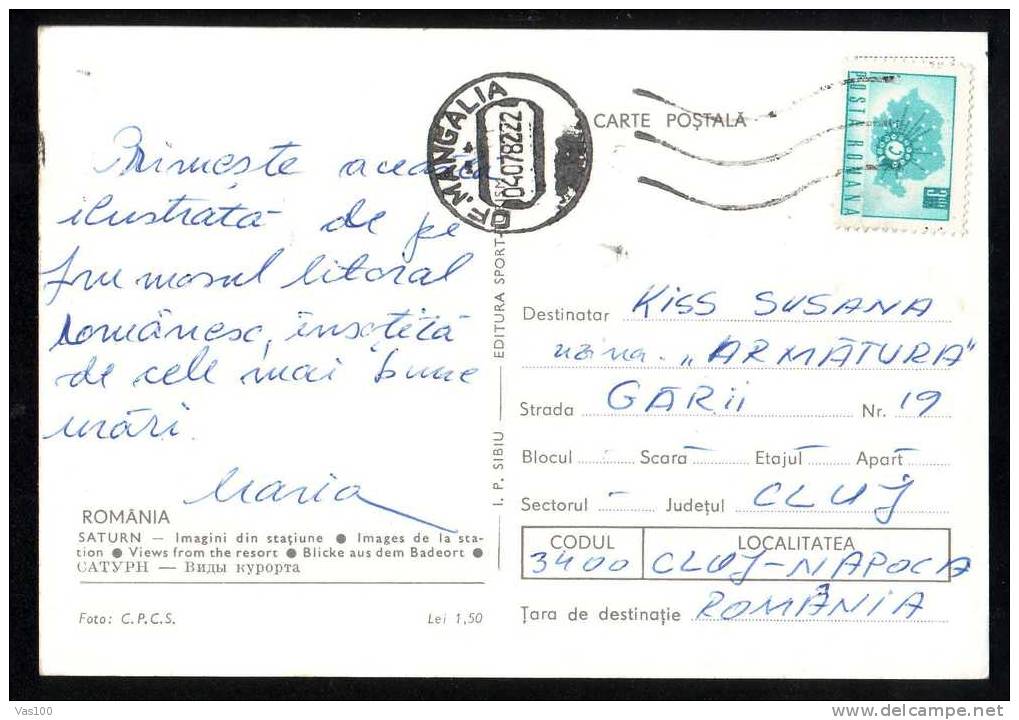 CARTE POȘTALĂ
OF. MANGALIA
04078222
POSTA ROMANA
Primește această
ilustrată de pe
frumosul litoral
românesc, însoțită
de cele mai bune
urări.
Maria
ROMÂNIA
SATURN — Imagini din stațiune ● Images de la sta-
tion ● Views from the resort ● Blicke aus dem Badeort ●
САТУРН — Виды курорта
Foto: C.P.C.S. Lei 1,50
I. P. SIBIU — EDITURA SPORT-
Destinatar KISS SUSANA
uzina "ARMĂTURA"
Strada GĂRII Nr. 19
Blocul - Scara - Etajul - Apart -
Sectorul - Județul CLUJ
CODUL LOCALITATEA
3400 CLUJ-NAPOCA
Țara de destinație ROMÂNIA
Vas100
delcampe.net